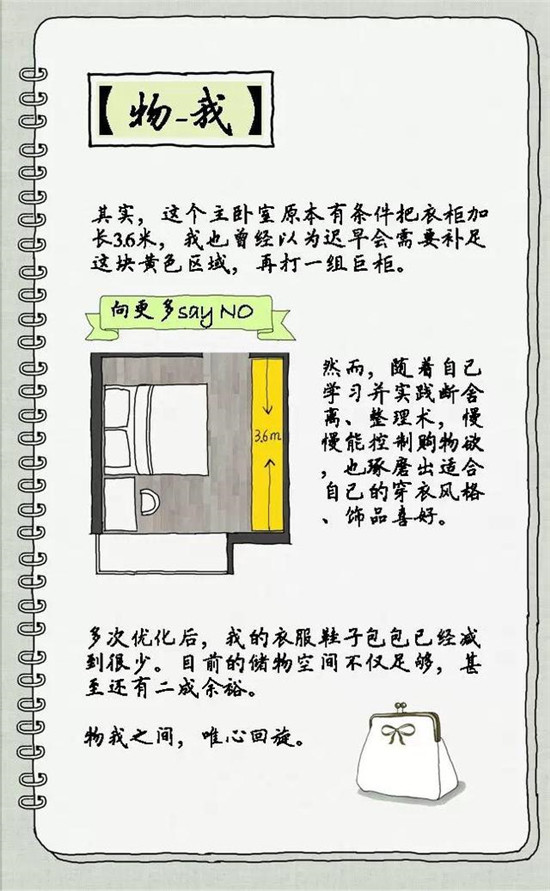 【物-我】
其实，这个主卧室原本有条件把衣柜加
长3.6米，我也曾经以为迟早会需要补足
这块黄色区域，再打一组巨柜。
向更多say NO
3.6m
然而，随着自己
学习并实践断舍
离、整理术，慢
慢能控制购物欲
，也琢磨出适合
自己的穿衣风格
、饰品喜好。
多次优化后，我的衣服鞋子包包已经减
到很少。目前的储物空间不仅足够，甚
至还有二成余裕。
物我之间，唯心回旋。